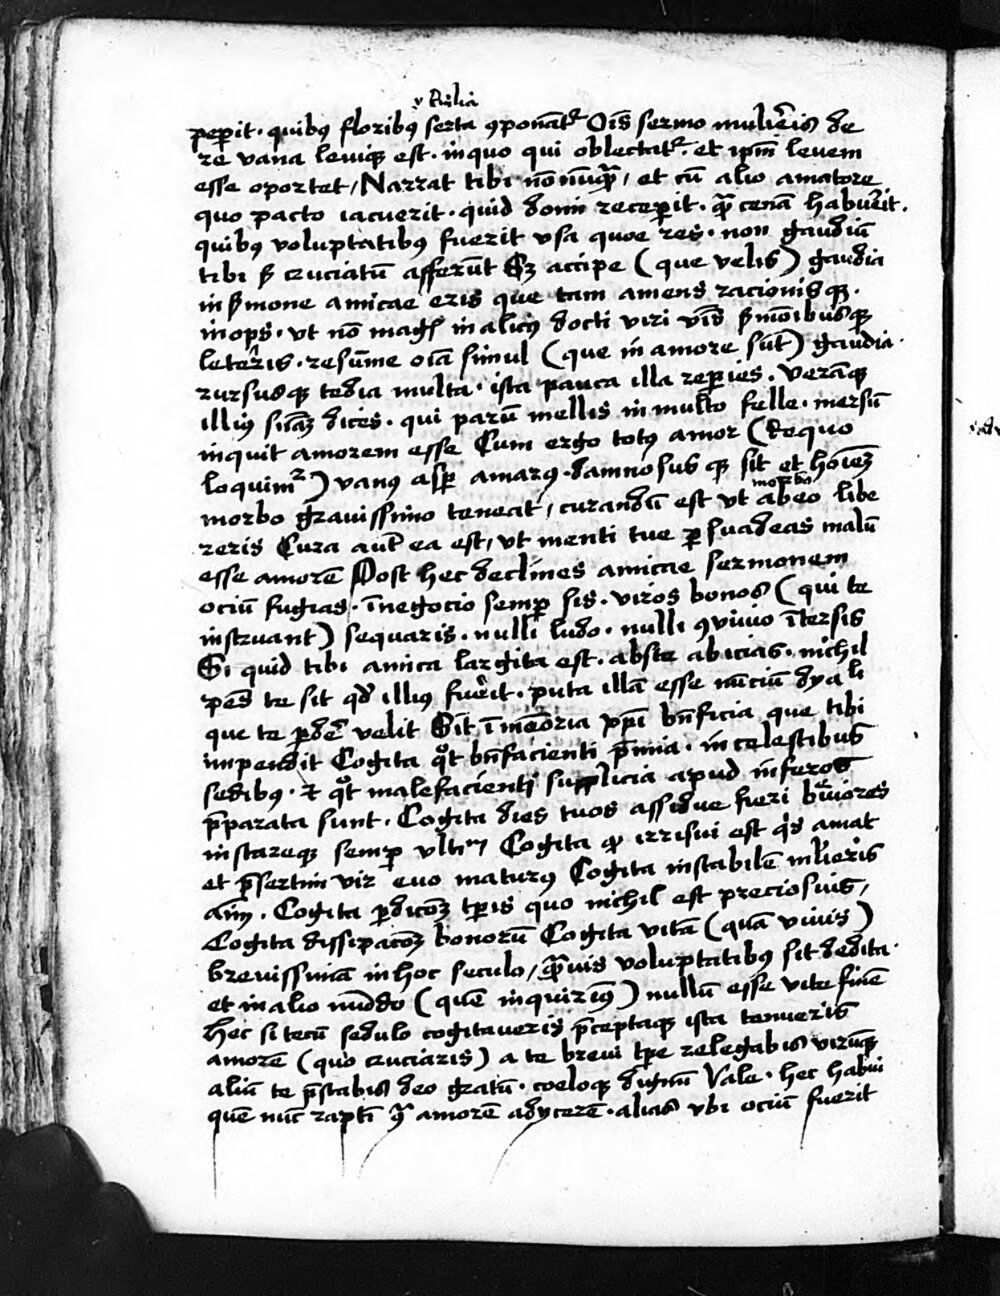 v Rulia
peperit · quibus floribus serta 9ponant᷑ Oīs sermo muliēris de
re vana leuiq̧ est · inquo qui oblectat᷑ · et ip̄m leuem
esse oportet / Narrat tibi nōnūq̄ᷓ / et cū alio amatore
quo pacto iacuerit · quid domi recep̱it · q̄ᷓ cenā habuērit ·
quibꝰ voluptatibꝰ fuerit vsa quoe res · non gaudiū
tibi s̄ cruciatū afferūt Sꝫ accipe ( que velis ) gaudia
in s̄mone amicae eris que tam amens racionisq̧ ·
inops · vt nō magꝭ in alicꝰ docti viri vīs s̄mōibusq̧
leterīs · resūme oīa simul ( que in amore sūt ) gaudia ·
rursusq̧ tedia multa · ista pauca illa rep̱ies · verāq̧
illiꝰ sniaꝫ dices · qui parū mellis in multo felle · mersū
inquit amorem esse Cum ergo totꝰ amor ( de quo
loquimꝰ ) vanꝰ asp̱ amarꝰ · damnosus q̧ sit et hoīeꝫ
morbo
morbo grauissimo teneat / curandū est vt ab eo libe
reris Cura aut̄ ea est / vt menti tue p̱suadeas malū
esse amorē Post hec declines amicae sermonem
ociū fugias · ī negocio semp̱ sis · viros bonos ( qui te
instruant ) sequaris · nulli ludo · nulli 9viuio ītersis
Si quid tibi amica largita est · abste abicias · nichil
pēs te sit qd̄ illiꝰ fuērit · puta illā esse nūciū dyali
que te p̱dēr velit Sīt ī memōria xp̄i bn̄ficia que tibi
impendit Cogita qͦt bn̄facienti p̄mia · in celestibus
sedibꝰ · ⁊ qͦt malefacienti supplicia apud inferos
p̄parata sunt · Cogita dies tuos assidue fieri br̄euiores
instareq̧ semp̱ vltīꝰ Cogita qͥ irrisui est qͥs amat
et p̄sertim vir euo maturꝰ Cogita instabilē mlieris
aīm · Cogita p̱dicoꝫ tp̱is quo nichil est preciosius /
Cogita dissipacoꝫ bonorū Cogita vitā ( quā viuis )
breuissimā in hoc seculo / q̄ᷓuis voluptatibꝰ sit dedita ·
et in alio mūdo ( quē inquirimꝰ ) nullū esse vite finē
hec si tecū sedulo cogitaueris p̄ceptaq̧ ista tenueris
amorē ( quo cruciaris ) a te breui tp̱e relegabis virūq̧
aliū te p̄stabis deo gratū · coeloq̧ dignū Vale · hec habui
quē nūc raptī 9ᷓ amorē adycerē · alias vbi ociū fuerit